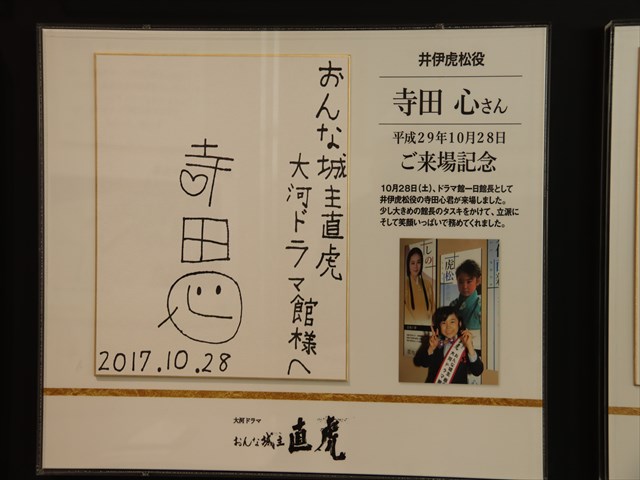 おんな城主直虎
大河ドラマ館様へ
寺田心
2017.10.28
井伊虎松役
寺田 心さん
平成29年10月28日
ご来場記念
10月28日(土)、ドラマ館一日館長として
井伊虎松役の寺田心君が来場しました。
少し大きめの館長のタスキをかけて、立派に
そして笑顔いっぱいで務めてくれました。
しの
虎松
大河ドラマ
おんな城主 直虎